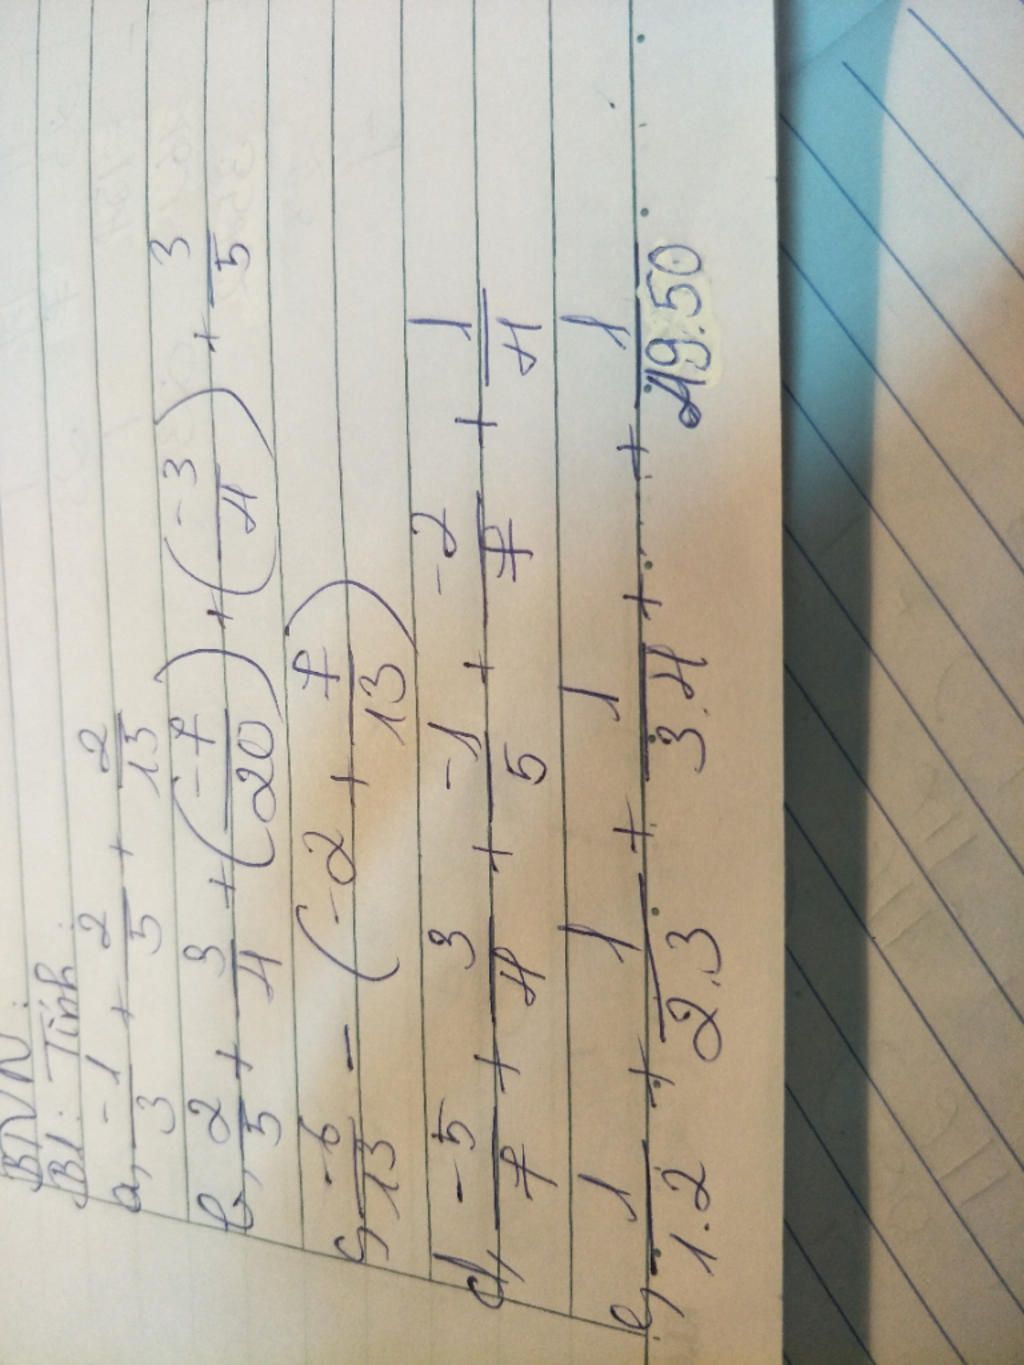 BTVN:
B1: Tính
a, -1/3 + 2/5 + 2/13
b, 2/5 + 3/4 + (-7/20) + (-3/4) + 3/5
c, -6/13 - (-2 + 7/13)
d, -5/7 + 3/4 + -1/5 + -2/7 + 1/4
e, 1/1.2 + 1/2.3 + 1/3.4 + ... + 1/49.50